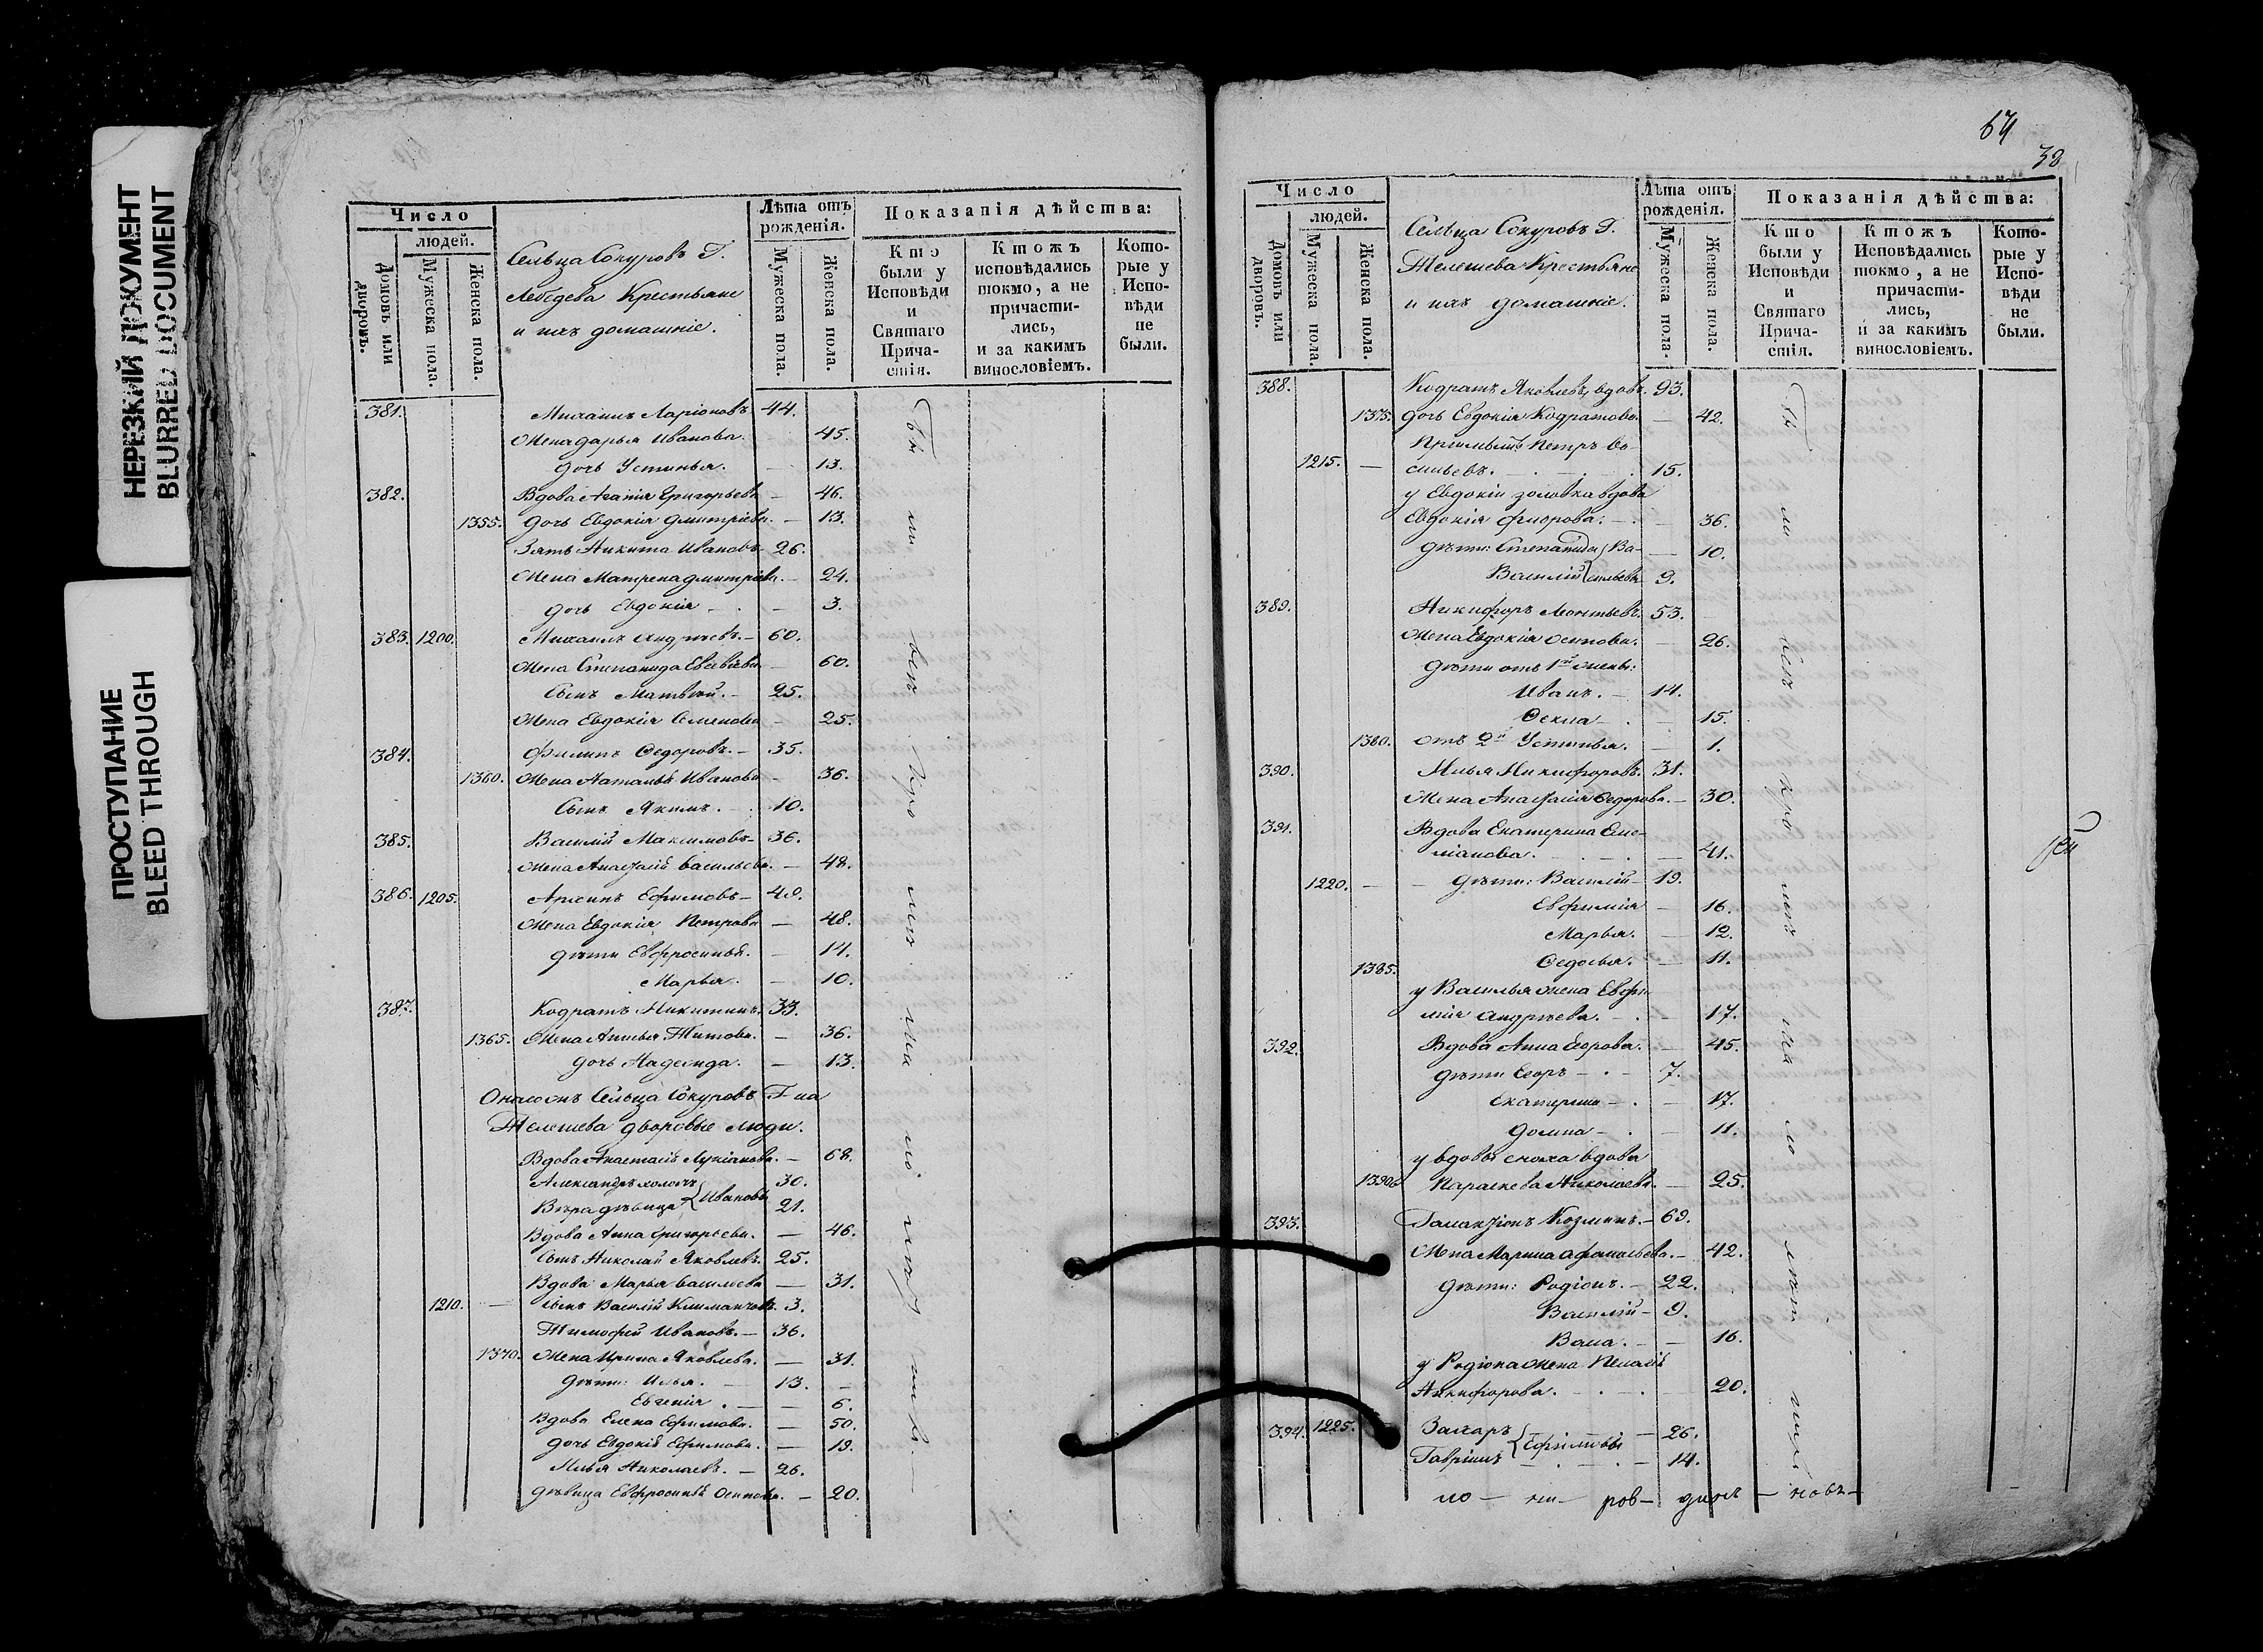 НЕРЕЗКИЙ ДОКУМЕНТ
BLURRED DOCUMENT
ПРОСТУПАНИЕ
BLEED THROUGH
Число
людей.
Домовъ или дворовъ.
Мужеска пола.
Женска пола.
Сельца Сокуровъ Г.
Лебедева Крестьяне
и ихъ домашніе.
Лѣта отъ рожденія.
Мужеска пола.
Женска пола.
Показанія дѣйства:
Кто были у Исповѣди и Святаго Причастія.
Ктожъ исповѣдались токмо, а не причастились, и за какимъ винословіемъ.
Которые у Исповѣди не были.
381. Михаилъ Ларіоновъ 44.
Жена Дарья Иванова. 45.
дочь Устинья. — 13.
382. Вдова Агапія Григорьева — 46.
1355. Дочь Евдокія Дмитріева. — 13.
Зять Никита Ивановъ 26.
Жена Матрена Дмитріева. — 24.
дочь Евдокія — 3.
383. 1200. Михаилъ Андреевъ. — 60.
Жена Степанида Евсевіева — 60.
Сынъ Матвѣй. — 25.
Жена Евдокія Семенова — 25.
384. Филипъ Ѳедоровъ. — 35.
1360. Жена Наталья Иванова — 36.
Сынъ Якимъ. 10.
385. Василій Максимовъ — 36.
Жена Анастасія Васильева. — 48.
386. 1205. Архипъ Ефимовъ — 49.
Жена Евдокія Петрова — 48.
дѣти Евфросинья. — 14.
Марья. — 10.
387. Кодратъ Никитинъ. 33.
1365. Жена Анисья Титова. — 36.
дочь Надежда. — 13.
Онаго жъ Сельца Сокуровъ Г-на
Телешева дворовые люди.
Вдова Анастасія Лукіанова. — 68.
Александръ холостъ 30.
Вѣра дѣвица } Ивановы 21.
Вдова Анна Григорьева. — 46.
Сынъ Николай Яковлевъ. 25.
Вдова Марья Васильева — 31.
1210. — сынъ Василій 3.
Тимофей Ивановъ. — 36.
1370. Жена Ирина Яковлева. — 31.
дѣти: Илья. — 13. —
Евгенія. — 6.
Вдова Елена Ефимова. — 50.
дочь Евдокія Ефимова. — 19.
Илья Николаевъ. — 26.
дѣвица Евфросинья Осипова. — 20.
64
38
Число
людей.
Домовъ или дворовъ.
Мужеска пола.
Женска пола.
Сельца Сокуровъ Г.
Телешева Крестьяне
и ихъ домашніе.
Лѣта отъ рожденія.
Мужеска пола.
Женска пола.
Показанія дѣйства:
Кто были у Исповѣди и Святаго Причастія.
Ктожъ Исповѣдались токмо, а не причастились, и за какимъ винословіемъ.
Которые у Исповѣди не были.
388. Кодратъ Яковлевъ, вдовъ. 93.
1375. дочь Евдокія Кодратова. — 42.
Пріемышъ Петръ Ва-
1215. — сильевъ. 15.
у Евдокіи золовка вдова
Евдокія Фиорова. — 36.
дѣти: Степанида } Ва- — 10.
Василій } сильевы 9.
389. Никифоръ Леонтьевъ. 53.
Жена Евдокія Осипова. — 26.
дѣти отъ 1й жены:
Иванъ. — 14.
Ѳекла — 15.
1380. отъ 2й Устинья. — 1.
390. Илья Никифоровъ. 31.
Жена Анастасія Ѳедорова. — 30.
391. Вдова Екатерина Еме-
ліанова. — 41.
1220. — дѣти: Василій — 19.
Евфимія — 16.
Марья. — 12.
1385. Ѳедосья. — 11.
у Василья жена Евфи-
мія Андреева. — 17.
392. Вдова Анна Егорова. — 45.
дѣти Егоръ — 7.
Екатерина — 17.
Домна — 11.
у вдовы сноха вдова
1390. Параскева Николаева. — 25.
393. Галактіонъ Козминъ. — 69.
Жена Марина Афанасьева. — 42.
дѣти: Родіонъ. — 22.
Василій — 9.
Васса. — 16.
у Родіона жена Пелагія
Никифорова. — 20.
394. 1225. Захаръ } — 26.
Гавріилъ } Ефимовы — 14.